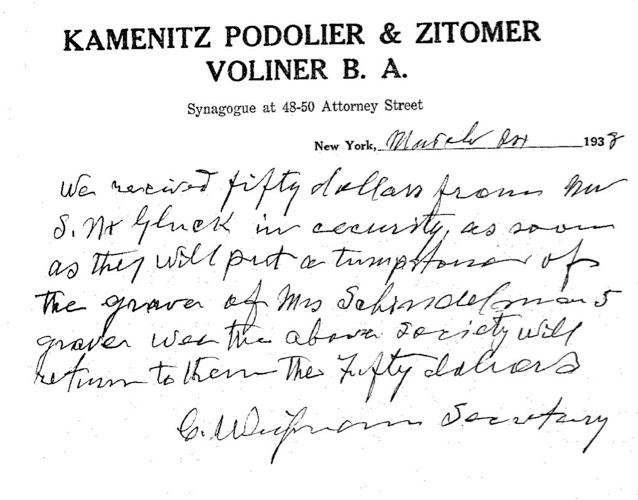 KAMENITZ PODOLIER & ZITOMER
VOLINER B. A.
Synagogue at 48-50 Attorney Street
New York, March 1938
We received fifty dollars from Mr
S. M Gluck in security, as soon
as they will put a tumpstone of
the graver of Mrs Schindelman 5
graver wee the above Society will
return to them the Fifty dollars
C. Secretary